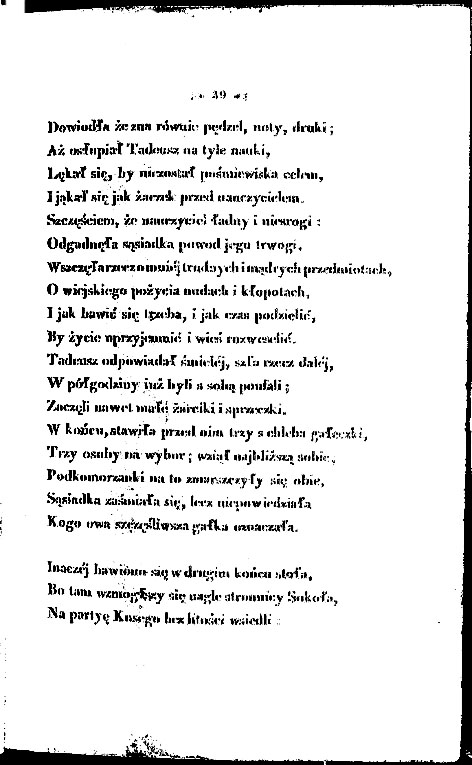 39
Dowiodła że zna równie pędzel, noty, druki;
Aż osłupiał Tadeusz na tyle nauki,
Lękał się, by niezostał pośmiewiska celem,
I jąkał się jak żaczek przed nauczycielem.
Szczęściem, że nauczyciel ładny i niesrogi:
Odgadnęła sąsiadka powod jego trwogi,
Wszczęła rzecz o mniéj trudnych i mądrych przedmiotach,
O wiejskiego pożycia nudach i kłopotach,
I jak bawić się trzeba, i jak czas podzielić,
By życie uprzyjemnić i wieś rozweselić.
Tadeusz odpowiadał śmieléj, szła rzecz daléj,
W półgodziny już byli z sobą poufali;
Zaczęli nawet małe żarciki i sprzeczki.
W końcu, stawiła przed nim trzy z chleba gałeczki,
Trzy osoby na wybor; wziął najbliższą sobie,
Podkomorzanki na to zmarszczyły się obie,
Sąsiadka zaśmiała się, lecz niepowiedziała
Kogo owa szczęśliwsza gałka oznaczała.
Inaczéj bawiono się w drugim końcu stoła,
Bo tam wzmogłszy się nagle stronnicy Sokoła,
Na partyę Kusego bez litości wsiedli: